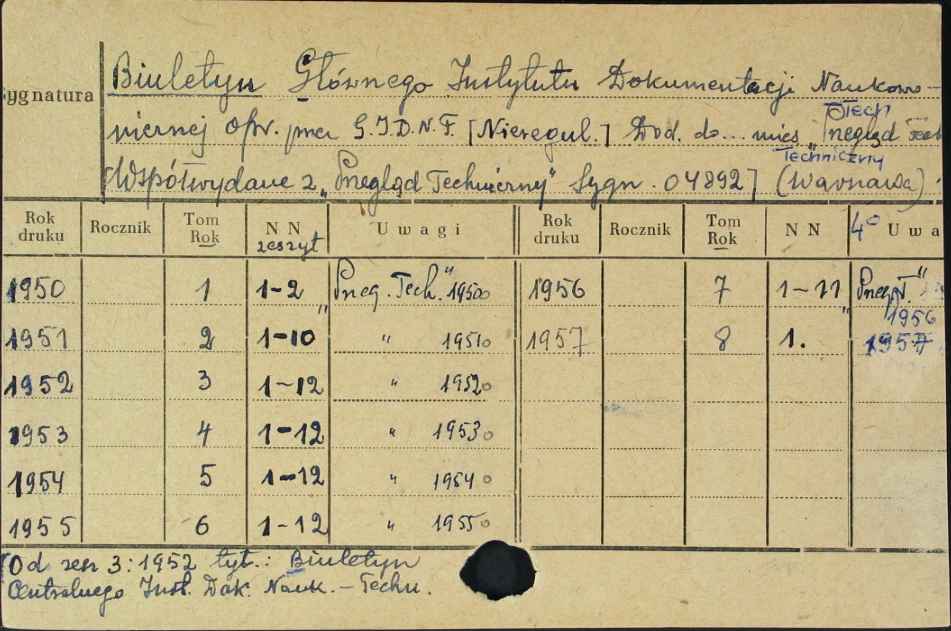 Sygnatura
Biuletyn Głównego Instytutu Dokumentacji Naukowo-
Tech
nicznej opr. przez G.I.D.N.T. [Nieregul.] Dod. do... mies. "Przegląd Tech
Techniczny
Współwydane z "Przegląd Techniczny" Sygn. 04892] (Warszawa)
Rok druku Rocznik Tom Rok NN zeszyt Uwagi Rok druku Rocznik Tom Rok NN 4° Uwa
1950 1 1-2 "Przeg. Tech." 1950 1956 7 1-11 "Przeg. T." 1956
1951 2 1-10 " 1951 1957 8 1. " 1957
1952 3 1-12 " 1952
1953 4 1-12 " 1953
1954 5 1-12 " 1954
1955 6 1-12 " 1955
Od zesz 3:1952 tyt.: Biuletyn
Centralnego Inst. Dok. Nauk.-Techn.